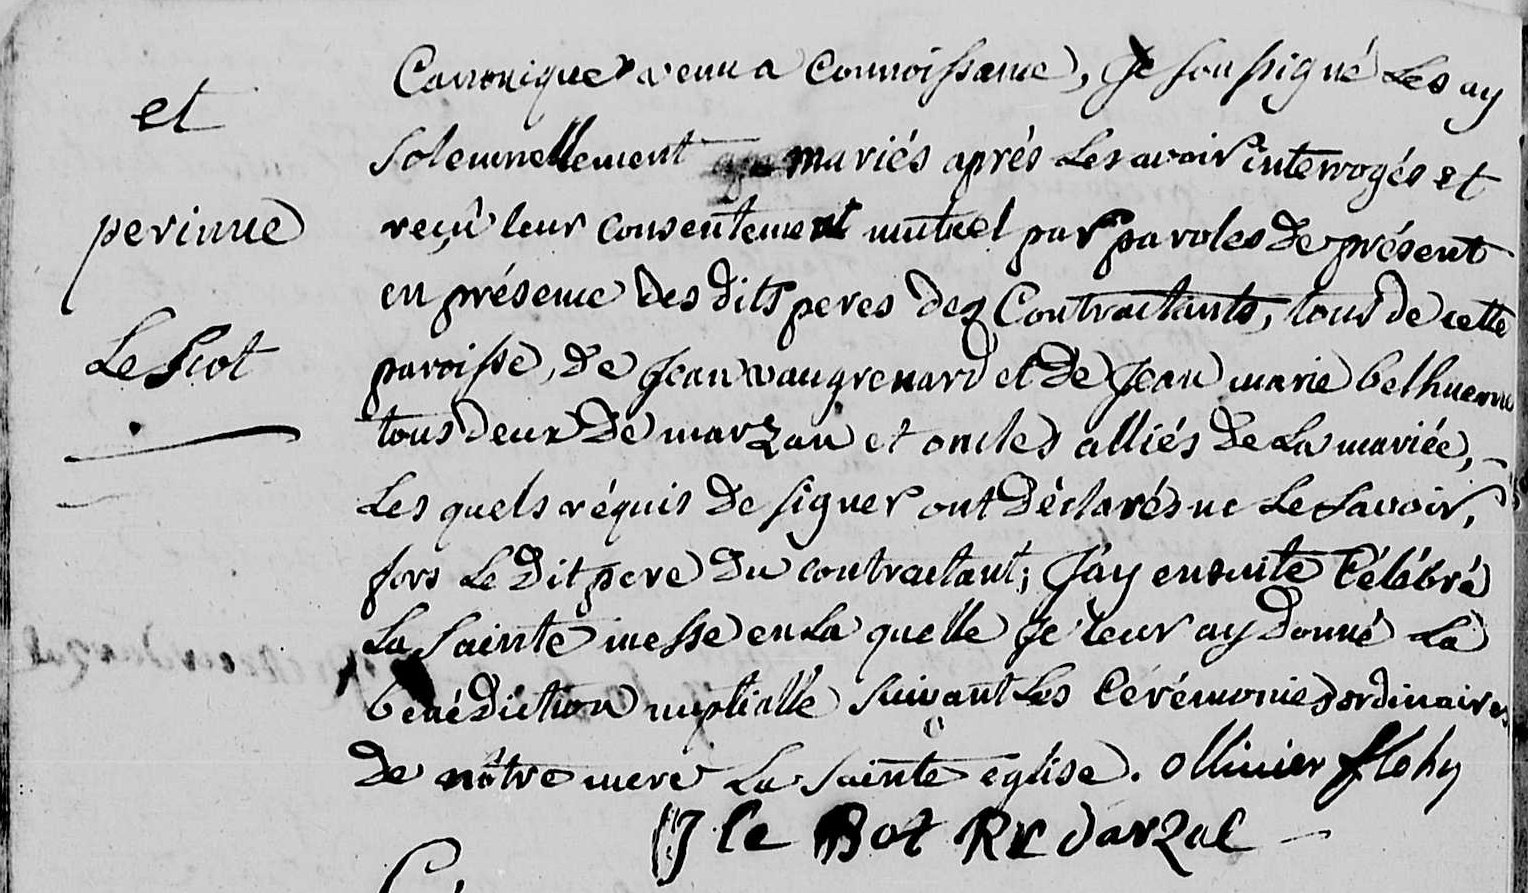 et
perinne
Le Scot
Canonique venu a Connoissance, Je soussigné Les ay
solemnellement mariés aprés Les avoir interrogés et
reçû leur Consentement mutuel par paroles de présent
en présence des dits peres des Contractants, tous de cette
paroisse, de Jean vaugrenard et de Jean marie belhuerne
tous deux de marzan et oncles alliés de La mariée,
Les quels réquis de signer ont déclarés ne Le savoir,
fors Le dit pere du contractant; J'ay ensuite Célébré
La Sainte messe en La quelle Je leur ay donné La
bénédiction nuptialle suivant Les Cérémonies ordinaires
de nôtre mere La sainte eglise. ollivier flohy
J le Bot Rr darzal